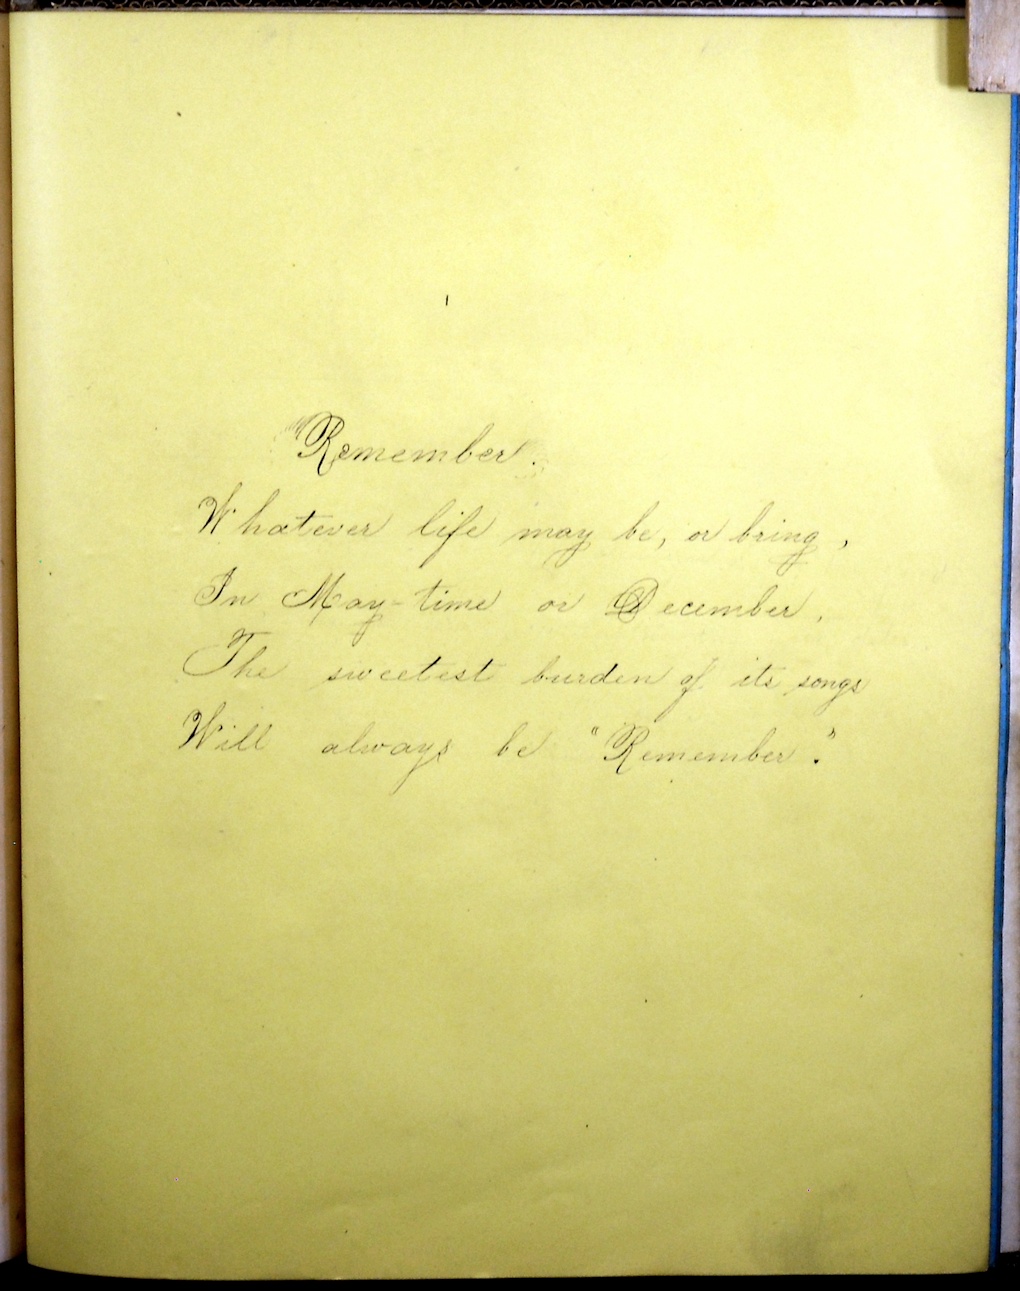 "Remember.
Whatever life may be, or bring,
In May-time or December,
The sweetest burden of its songs
Will always be "Remember."